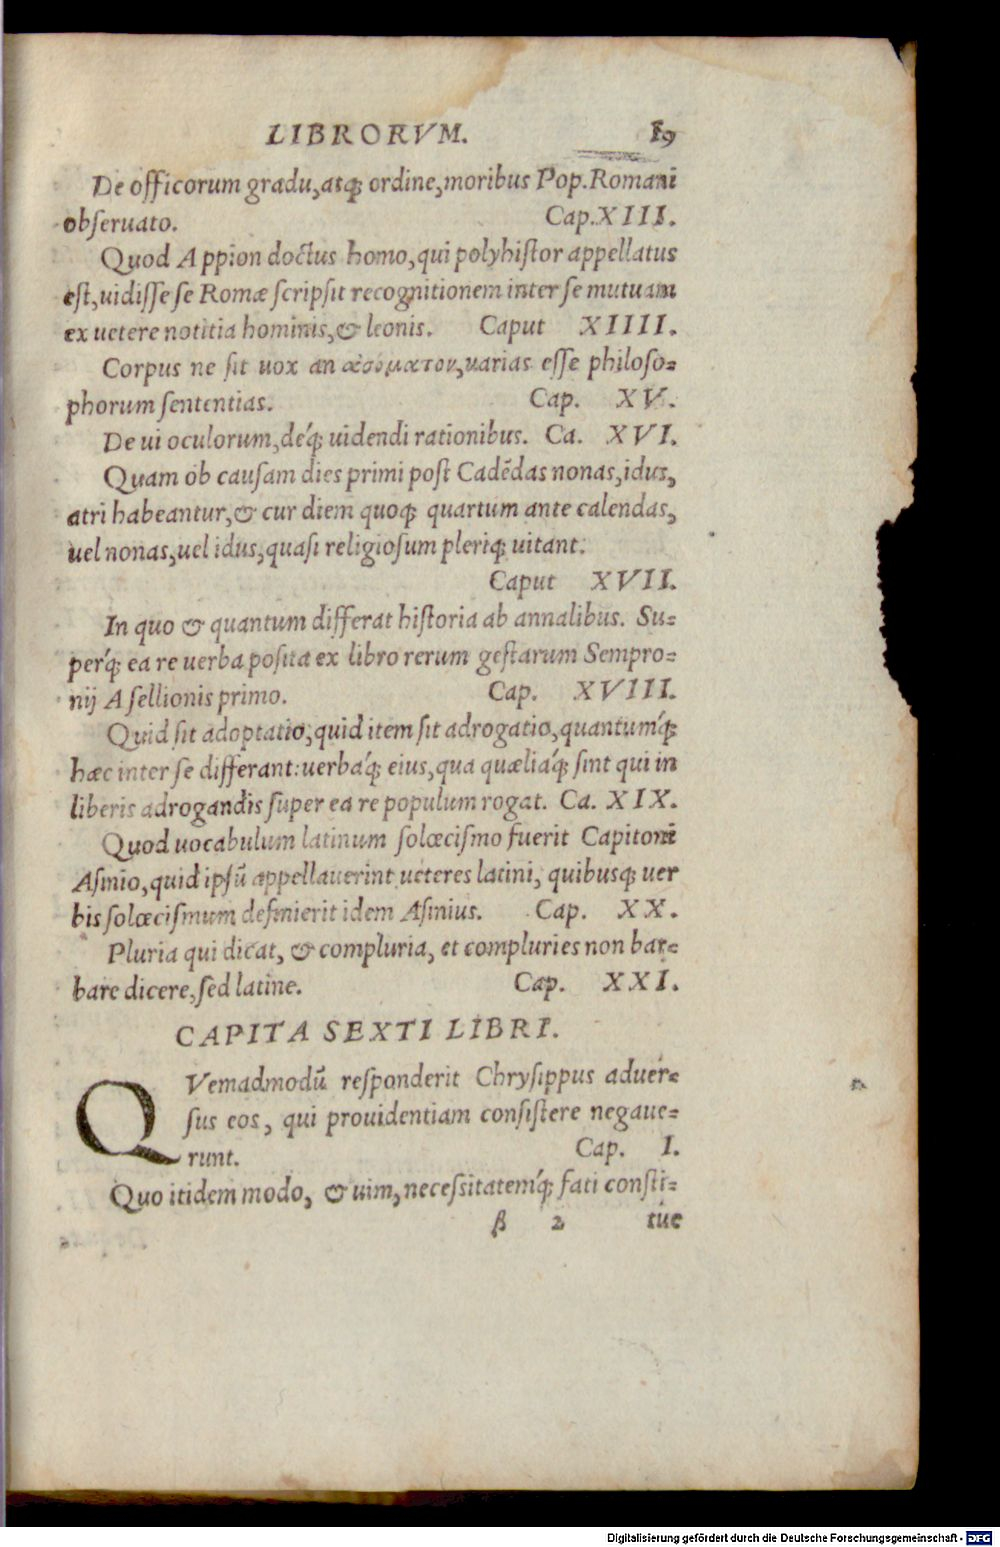 LIBRORVM. 19
De officorum gradu, atq; ordine, moribus Pop. Romani
obſeruato. Cap. XIII.
Quod Appion doctus homo, qui polyhiſtor appellatus
eſt, uidiſſe ſe Romæ ſcripſit recognitionem inter ſe mutuam
ex uetere notitia hominis, & leonis. Caput XIIII.
Corpus ne ſit uox an ἀσόματον, uarias eſſe philoſo=
phorum ſententias. Cap. XV.
De ui oculorum, deq́; uidendi rationibus. Ca. XVI.
Quam ob cauſam dies primi poſt Cadēdas nonas, idus,
atri habeantur, & cur diem quoq; quartum ante calendas,
uel nonas, uel idus, quaſi religioſum pleriq; uitant.
Caput XVII.
In quo & quantum differat hiſtoria ab annalibus. Su=
perq́; ea re uerba poſita ex libro rerum geſtarum Sempro=
nij Aſellionis primo. Cap. XVIII.
Quid ſit adoptatio, quid item ſit adrogatio, quantumq́;
hæc inter ſe differant: uerbaq́; eius, qua quæliaq́; ſint qui in
liberis adrogandis ſuper ea re populum rogat. Ca. XIX.
Quod uocabulum latinum ſolœciſmo fuerit Capitoni
Aſinio, quid ipſū appellauerint ueteres latini, quibusq; uer
bis ſolœciſmum definierit idem Aſinius. Cap. XX.
Pluria qui dicat, & compluria, et compluries non bar=
bare dicere, ſed latine. Cap. XXI.
CAPITA SEXTI LIBRI.
QVemadmodū reſponderit Chryſippus aduer=
ſus eos, qui prouidentiam conſiſtere negaue=
runt. Cap. I.
Quo itidem modo, & uim, neceſsitatemq́; fati conſti=
β 2 tue
Digitalisierung gefördert durch die Deutsche Forschungsgemeinschaft - DFG